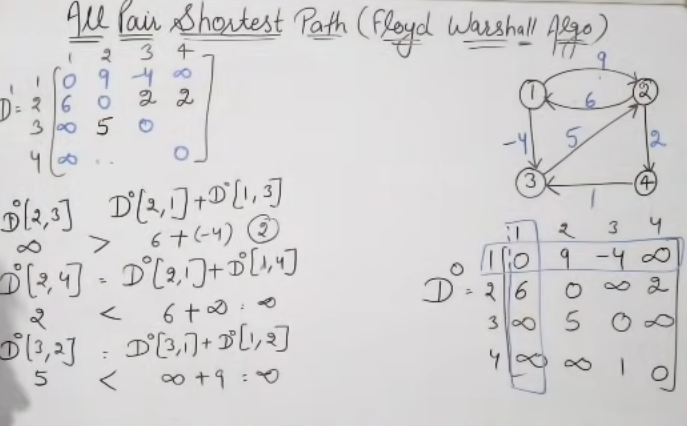 All Pair Shortest Path (Floyd Warshall Algo)
1 2 3 4
D¹ = 1 [ 0 9 -4 ∞ ]
2 6 0 2 2
3 ∞ 5 0
4 ∞ .. 0
D⁰[2,3] D⁰[2,1]+D⁰[1,3]
∞ > 6+(-4) ②
D⁰[2,4] = D⁰[2,1]+D⁰[1,4]
2 < 6+∞ = ∞
D⁰[3,2] = D⁰[3,1]+D⁰[1,2]
5 < ∞+9 = ∞
9
1 2
6
-4 5 2
3 4
1
1 2 3 4
1 0 9 -4 ∞
D⁰ = 2 6 0 ∞ 2
3 ∞ 5 0 ∞
4 ∞ ∞ 1 0